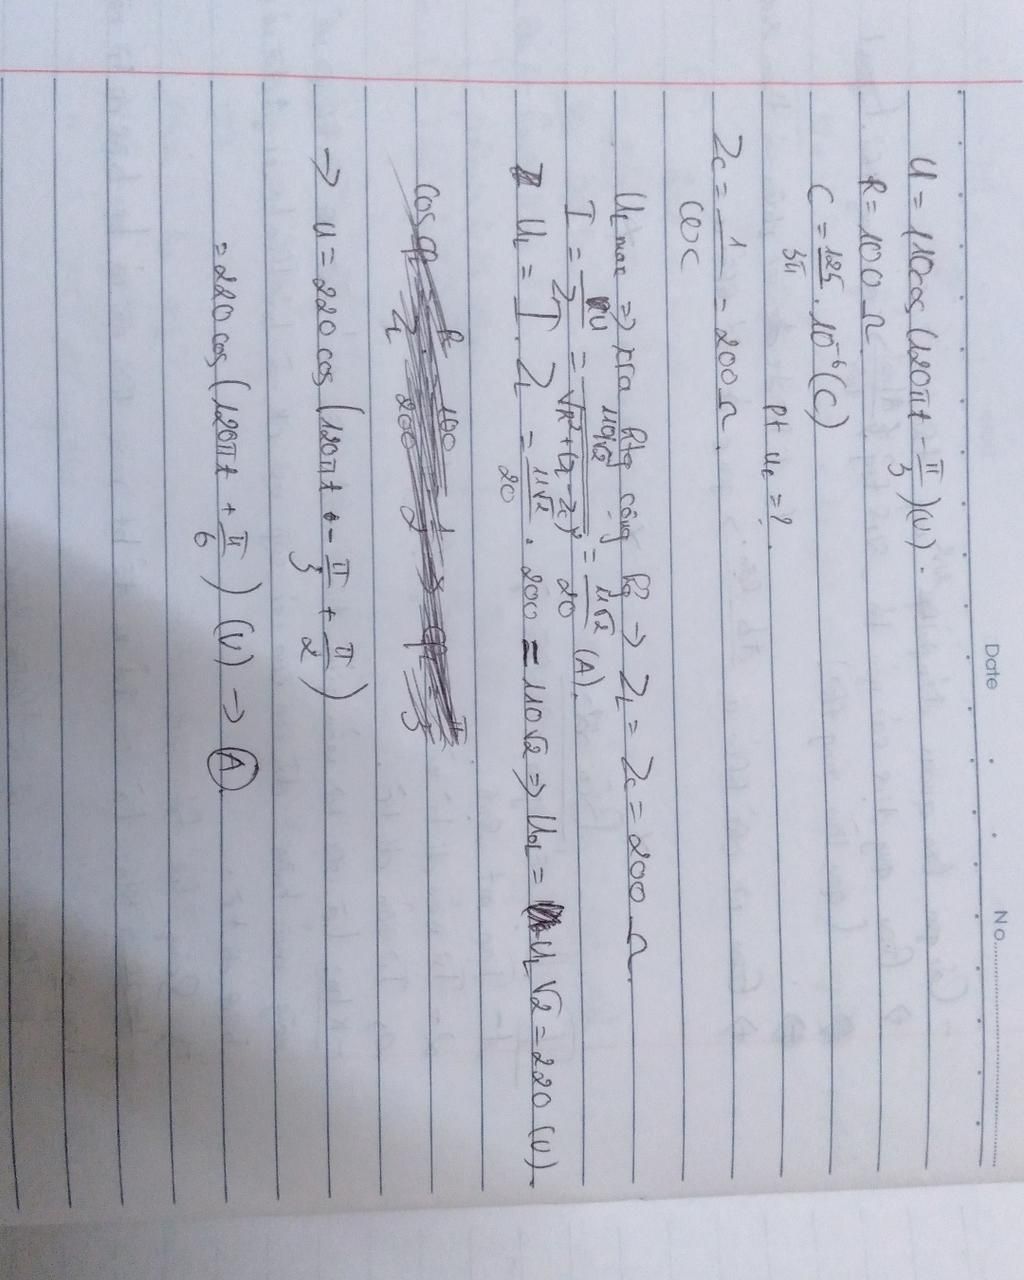 Date
No.
U = 110cos (120πt - π/3)(V).
R = 100 Ω
C = 125/3π . 10^-6 (C)
pt uL = ?
Zc = 1/ωC = 200 Ω.
UL max => xra htg cộng hg → ZL = Zc = 200 Ω.
I = U/ZT = 110√2/√R²+(ZL-Zc)² = 11√2/20 (A).
UL = I. ZL = 11√2/20 . 200 = 110√2 => U0L = UL √2 = 220 (V).
→ u = 220 cos (120πt - π/3 + π/2)
= 220 cos (120πt + π/6) (V) → A